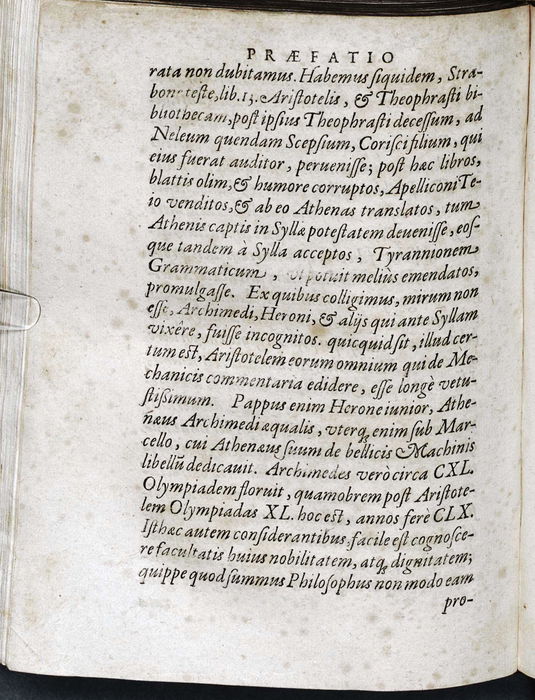 PRÆFATIO
rata non dubitamus. Habemus siquidem, Stra-
bone teste, lib. 13. Aristotelis, & Theophrasti bi-
bliothecam, post ipsius Theophrasti decessum, ad
Neleum quendam Scepsium, Corisci filium, qui
eius fuerat auditor, peruenisse; post hæc libros,
blattis olim, & humore corruptos, Apelliconi Te-
io venditos, & ab eo Athenas translatos, tum
Athenis captis in Syllæ potestatem deuenisse, eos-
que tandem à Sylla acceptos, Tyrannionem
Grammaticum, vt potuit meliùs emendatos,
promulgasse. Ex quibus colligimus, mirum non
esse, Archimedi, Heroni, & alijs qui ante Syllam
vixêre, fuisse incognitos. quicquid sit, illud cer-
tum est, Aristotelem eorum omnium qui de Me-
chanicis commentaria edidere, esse longè vetu-
stissimum. Pappus enim Herone iunior, Athe-
næus Archimedi æqualis, vterq; enim sub Mar-
cello, cui Athenæus suum de bellicis Machinis
libellũ dedicauit. Archimedes verò circa CXL.
Olympiadem floruit, quamobrem post Aristote-
lem Olympiadas XL. hoc est, annos ferè CLX.
Isthæc autem considerantibus facile est cognosce-
re facultatis huius nobilitatem, atq; dignitatem;
quippe quod summus Philosophus non modo eam
pro-